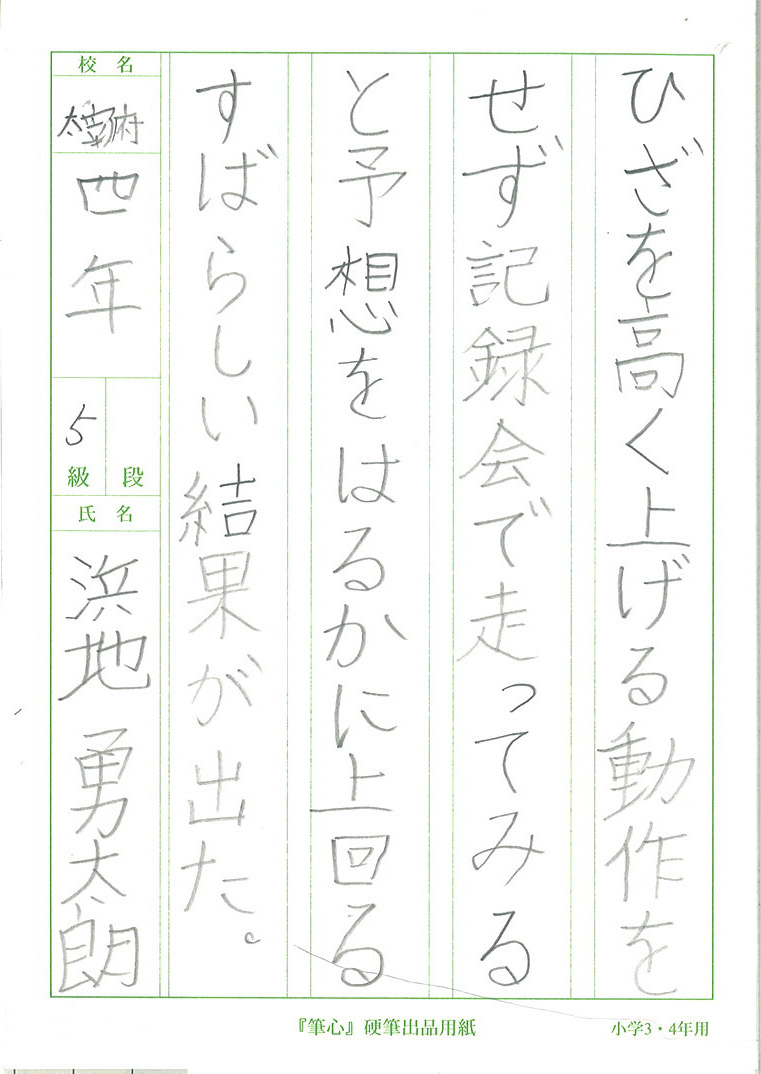 ひざを高く上げる動作を
せず記録会で走ってみる
と予想をはるかに上回る
すばらしい結果が出た。
校名
太宰府
四年
5級
段
氏名
浜地 勇太朗
『筆心』硬筆出品用紙
小学3・4年用